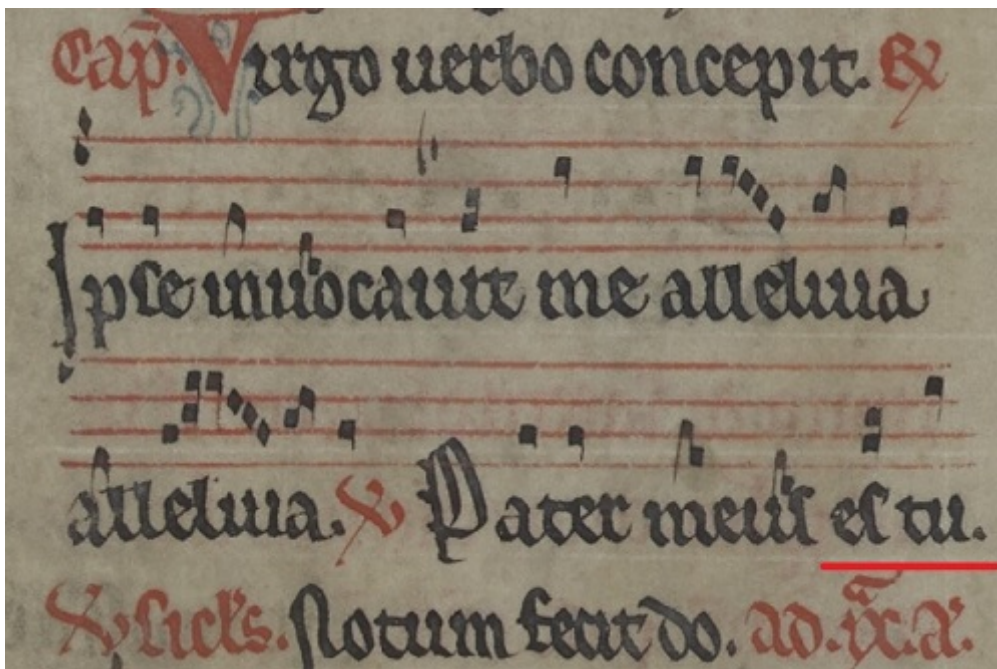 Cap̄. Virgo uerbo concepit. R̸
Ipse inuocauit me alleluia
alleluia. V̸ Pater meus es tu.
Notum fecit do. ad.